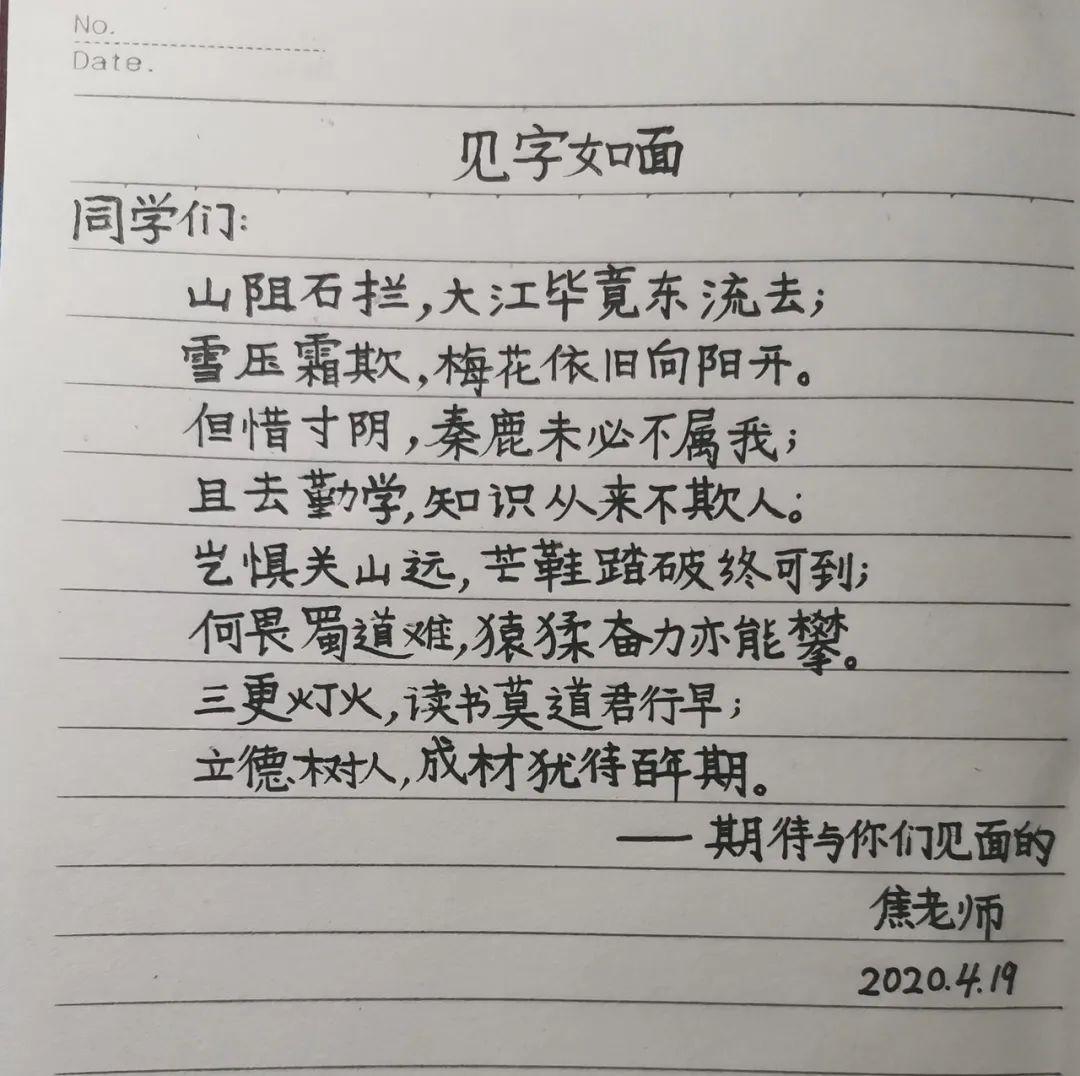 No.
Date.
见字如面
同学们:
山阻石拦,大江毕竟东流去;
雪压霜欺,梅花依旧向阳开。
但惜寸阴,秦鹿未必不属我;
且去勤学,知识从来不欺人。
岂惧关山远,芒鞋踏破终可到;
何畏蜀道难,猿猱奋力亦能攀。
三更灯火,读书莫道君行早;
立德树人,成材犹待百年期。
——期待与你们见面的
焦老师
2020.4.19